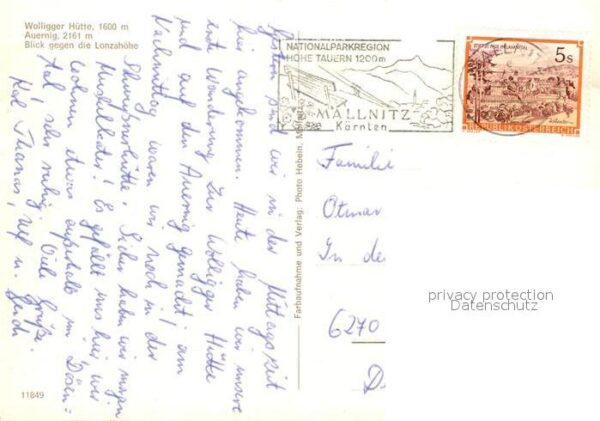 Wolligger Hütte, 1600 m
Auernig, 2161 m
Blick gegen die Lonzahöhe
Gestern sind wir in der Mittagszeit
hier angekommen. Heute haben wir unsere
erste Wanderung zur Wolligger Hütte
und auf den Auernig gemacht! am
Nachmittag waren wir noch in der
Sicher haben wir morgen
Muskelkater! Es gefällt uns hier, wir
wohnen etwas außerhalb im Dösen=
tal, sehr ruhig. Viele Grüße
Thomas, u.
11849
Farbaufnahme und Verlag: Photo Hebein,
NATIONALPARKREGION
HOHE TAUERN 1200m
MALLNITZ
Kärnten
5s
REPUBLIK ÖSTERREICH
Familie
Otmar
In de
6270
D
privacy protection
Datenschutz